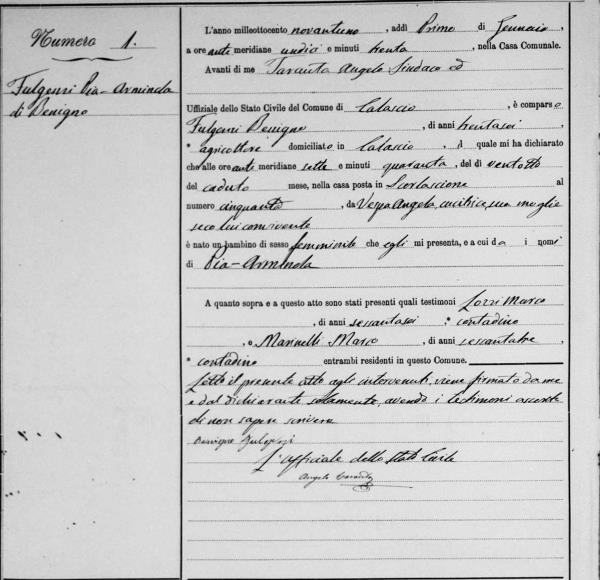 Numero 1.
Fulgenzi Pia-Arminda
di Benigno
L'anno milleottocento novantuno, addì Primo di Gennaio,
a ore ante meridiane undici e minuti trenta, nella Casa Comunale.
Avanti di me Taranta Angelo Sindaco ed
Uffiziale dello Stato Civile del Comune di Calascio, è comparso
Fulgenzi Benigno, di anni trentasei,
agricoltore domiciliato in Calascio, il quale mi ha dichiarato
che alle ore ante meridiane sette e minuti quaranta, del dì ventotto
del caduto mese, nella casa posta in al
numero cinquanta, da Vespa Angela, cucitrice, sua moglie
seco lui convivente
è nato un bambino di sesso femminile che egli mi presenta, e a cui da i nomi
di Pia-Arminda
A quanto sopra e a questo atto sono stati presenti quali testimoni Marco
, di anni sessantasei, contadino
, e Marinelli Marco, di anni sessantatre,
contadino entrambi residenti in questo Comune.
Letto il presente atto agli intervenuti, viene firmato da me
e dal dichiarante solamente, avendo i testimoni asserito
di non sapere scrivere
Benigno Fulgenzi
L'Ufficiale dello Stato Civile
Angelo Taranta